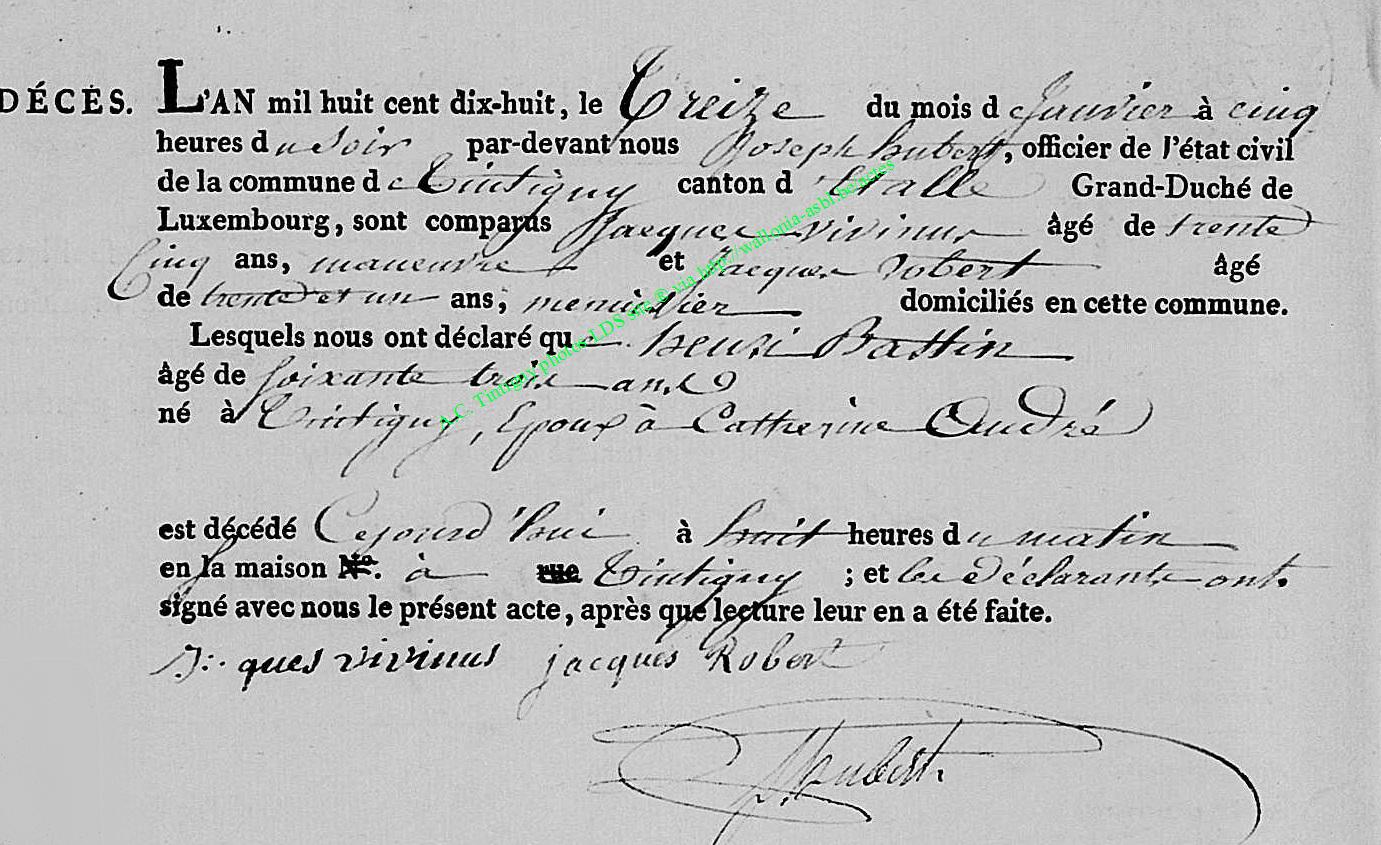 DÉCÈS. L'AN mil huit cent dix-huit, le Treize du mois de Janvier à cinq
heures du Soir par-devant nous Joseph hubert, officier de l'état civil
de la commune de Tintigny canton d'Etalle Grand-Duché de
Luxembourg, sont comparus Jacques vivinus âgé de trente
Cinq ans, maneuvre et Jacques robert âgé
de trente et un ans, menuisier domiciliés en cette commune.
Lesquels nous ont déclaré que henri Bastin
âgé de soixante trois ans
né à Tintigny, Epoux à Catherine André
est décédé Cejourd'hui à huit heures du matin
en sa maison N.º à rue Tintigny ; et les Déclarants ont
signé avec nous le présent acte, après que lecture leur en a été faite.
J: ques vivinus jacques Robert
J Hubert.
A.C. Tintigny photos LDS site ® via http://wallonia-asbl.be/actes